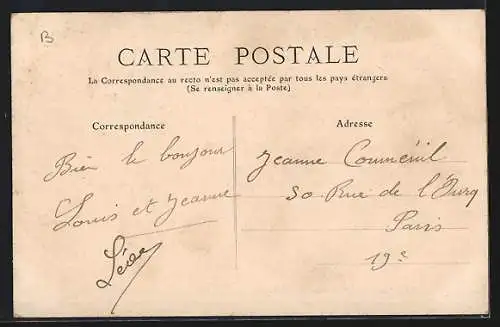 B
CARTE POSTALE
La Correspondance au recto n'est pas acceptée par tous les pays étrangers
(Se renseigner à la Poste)
Correspondance
Bien le bonjour
Louis et Jeanne
Adresse
Jeanne
50 Rue de l'Ourq
Paris
19e